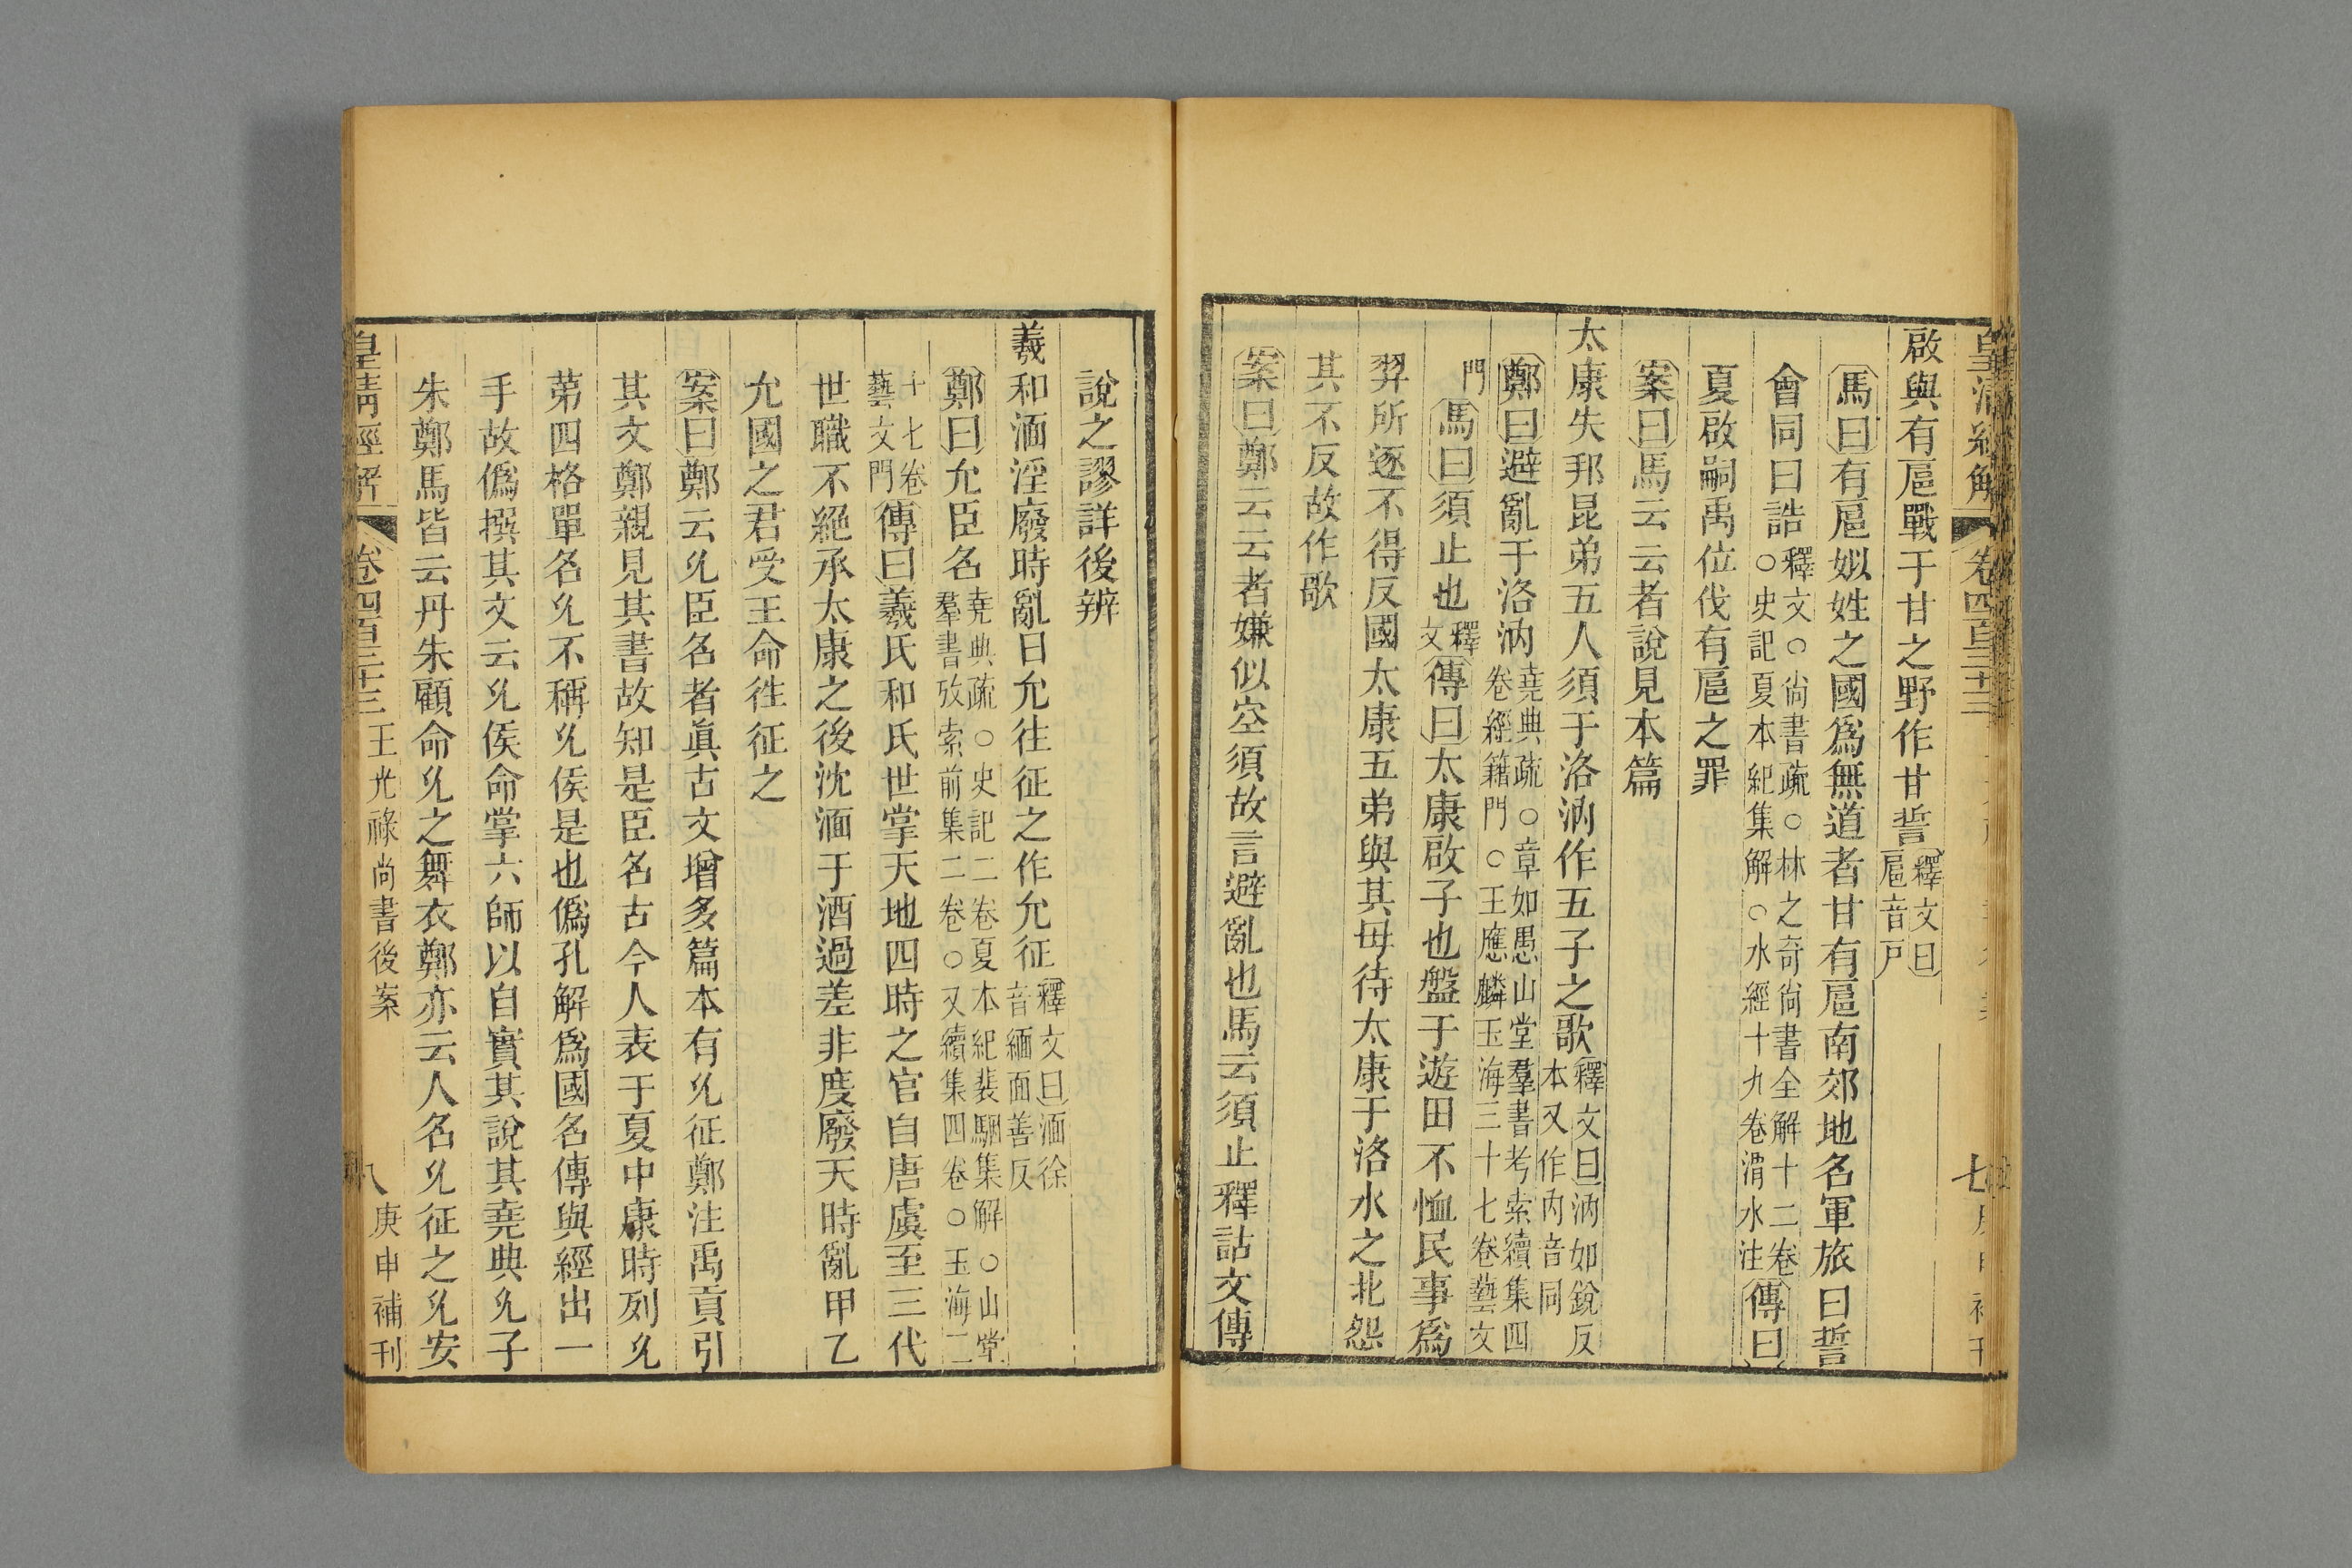 皇清經解 卷四百三十三 七 庚申補刊
啟與有扈戰于甘之野作甘誓釋文曰扈音戸
馬曰有扈姒姓之國爲無道者甘有扈南郊地名軍旅曰誓
會同曰誥釋文○尚書疏○林之奇尚書全解十二卷○史記夏本紀集解○水經十九卷渭水注傳曰
夏啟嗣禹位伐有扈之罪
案曰馬云云者說見本篇
太康失邦昆弟五人須于洛汭作五子之歌釋文曰汭如銳反本又作内音同
鄭曰避亂于洛汭堯典疏○章如愚山堂羣書考索續集四卷經籍門○王應麟玉海三十七卷藝文
門馬曰須止也釋文傳曰太康啟子也盤于遊田不恤民事爲
羿所逐不得反國太康五弟與其毋待太康于洛水之北怨
其不反故作歌
案曰鄭云云者嫌似空須故言避亂也馬云須止釋詁文傳
說之謬詳後辨
羲和湎淫廢時亂日允往征之作允征釋文曰湎徐音緬面善反
鄭曰允臣名堯典疏○史記二卷夏本紀裴駰集解○山堂羣書攷索前集二卷○又續集四卷○玉海二
十七卷藝文門傳曰羲氏和氏世掌天地四時之官自唐虞至三代
世職不絕承太康之後沈湎于酒過差非度廢天時亂甲乙
允國之君受王命徃征之
案曰鄭云𠃔臣名者眞古文增多篇本有𠃔征鄭注禹貢引
其文鄭親見其書故知是臣名古今人表于夏中康時列𠃔
苐四格單名𠃔不稱𠃔侯是也僞孔解爲國名傳與經出一
手故僞撰其文云𠃔侯命掌六師以自實其說其堯典𠃔子
朱鄭馬皆云丹朱顧命𠃔之舞衣鄭亦云人名𠃔征之𠃔安
皇清經解 卷四百三十三 王光祿尚書後案 八 庚申補刊